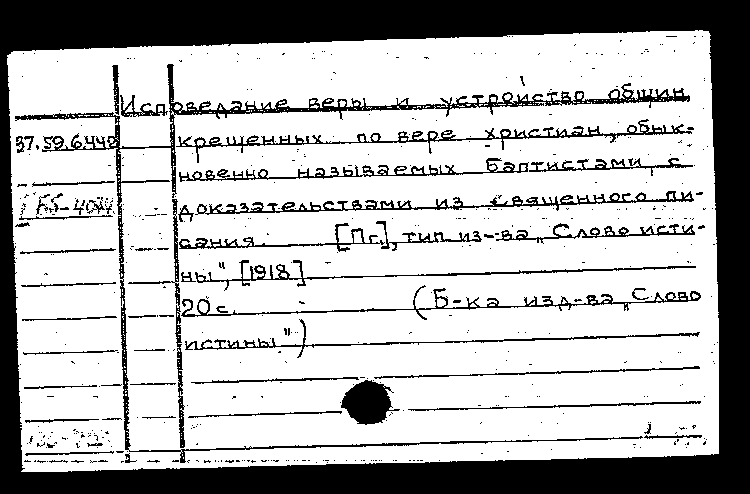 Исповедание веры и устройство общин
37.59.6.442 крещенных по вере христиан, обык-
новенно называемых баптистами, с
доказательствами из священного пи-
сания. [Пг.], тип. из-ва „Слово исти-
ны", [1918]
20 с. (Б-ка изд-ва „Слово
истины")